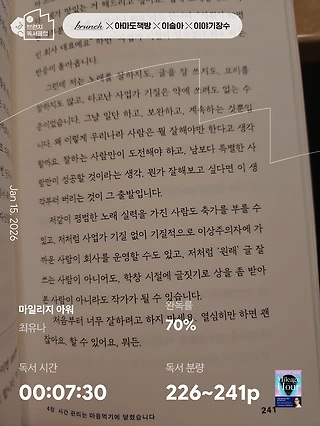 브런치
독서클럽
brunch × 아마도책방 × 이슬아 × 이야기장수
인 회사 대표예요" 하면
반응이 돌아옵니다.
그런데 저는 노래를 잘하지도, 글을 잘 쓰지도, 요리를
잘하지도 않고, 타고난 사업가 기질은 약에 쓰려도 없는 수
준이었습니다. 그냥 일단 하고, 보완하고, 계속하는 것뿐인
데. 왜 이렇게 우리나라 사람은 뭘 잘해야만 한다고 생각
할까요. 잘하는 사람만이 도전해야 하고, 남보다 특별한 사
람만이 성공할 것이라는 생각. 뭔가 잘해보고 싶다면 이 생
각부터 버리는 것이 그 출발입니다.
저같이 평범한 노래 실력을 가진 사람도 축가를 부를 수
있고, 저처럼 사업가 기질 없이 기질적으로 이상주의자에 가
까운 사람이 회사를 운영할 수도 있고, 저처럼 '원래' 글 잘
쓰는 사람이 아니어도, 학창 시절에 글짓기로 상을 좀 받아
본 사람이 아니라도 작가가 될 수 있습니다.
처음부터 너무 잘하려고 하지 마세요. 열심히만 하면 괜
찮아요. 할 수 있어요, 뭐든.
Jan 15, 2026
마일리지 아워
최유나
완독률
70%
독서 시간
00:07:30
독서 분량
226~241p
Mileage
Hour
4장 시간 관리는 마음먹기에 달렸습니다
241